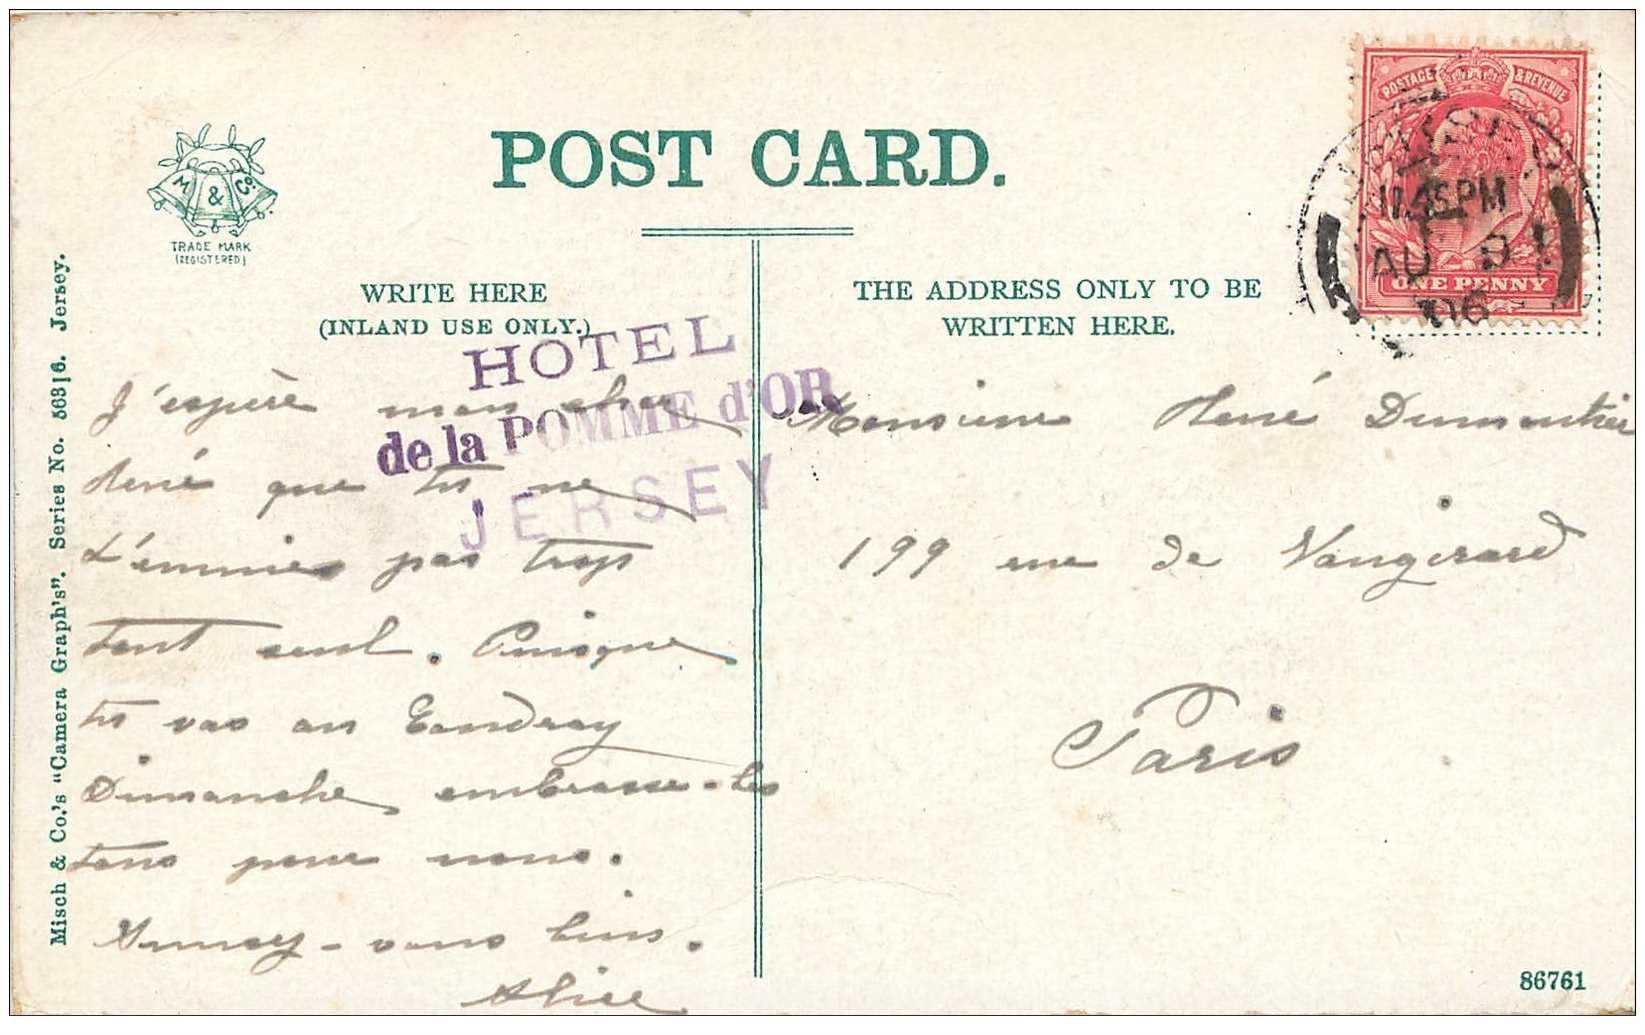 POST CARD.
M & Co.
TRADE MARK
(REGISTERED)
WRITE HERE
(INLAND USE ONLY.)
THE ADDRESS ONLY TO BE
WRITTEN HERE.
POSTAGE & REVENUE
ONE PENNY
JERSEY
11.45PM
AU 9
06
HOTEL
de la POMME d'OR
JERSEY
J'espère mon cher
René que tu ne
t'ennuies pas trop
tout seul. Puisque
tu vas au
Dimanche embrasse-les
tous pour nous.
Amusez-vous bien.
Alice
Monsieur René Dumoutier
199 rue de Vaugirard
Paris
Misch & Co.'s "Camera Graph's". Series No. 563/6. Jersey.
86761